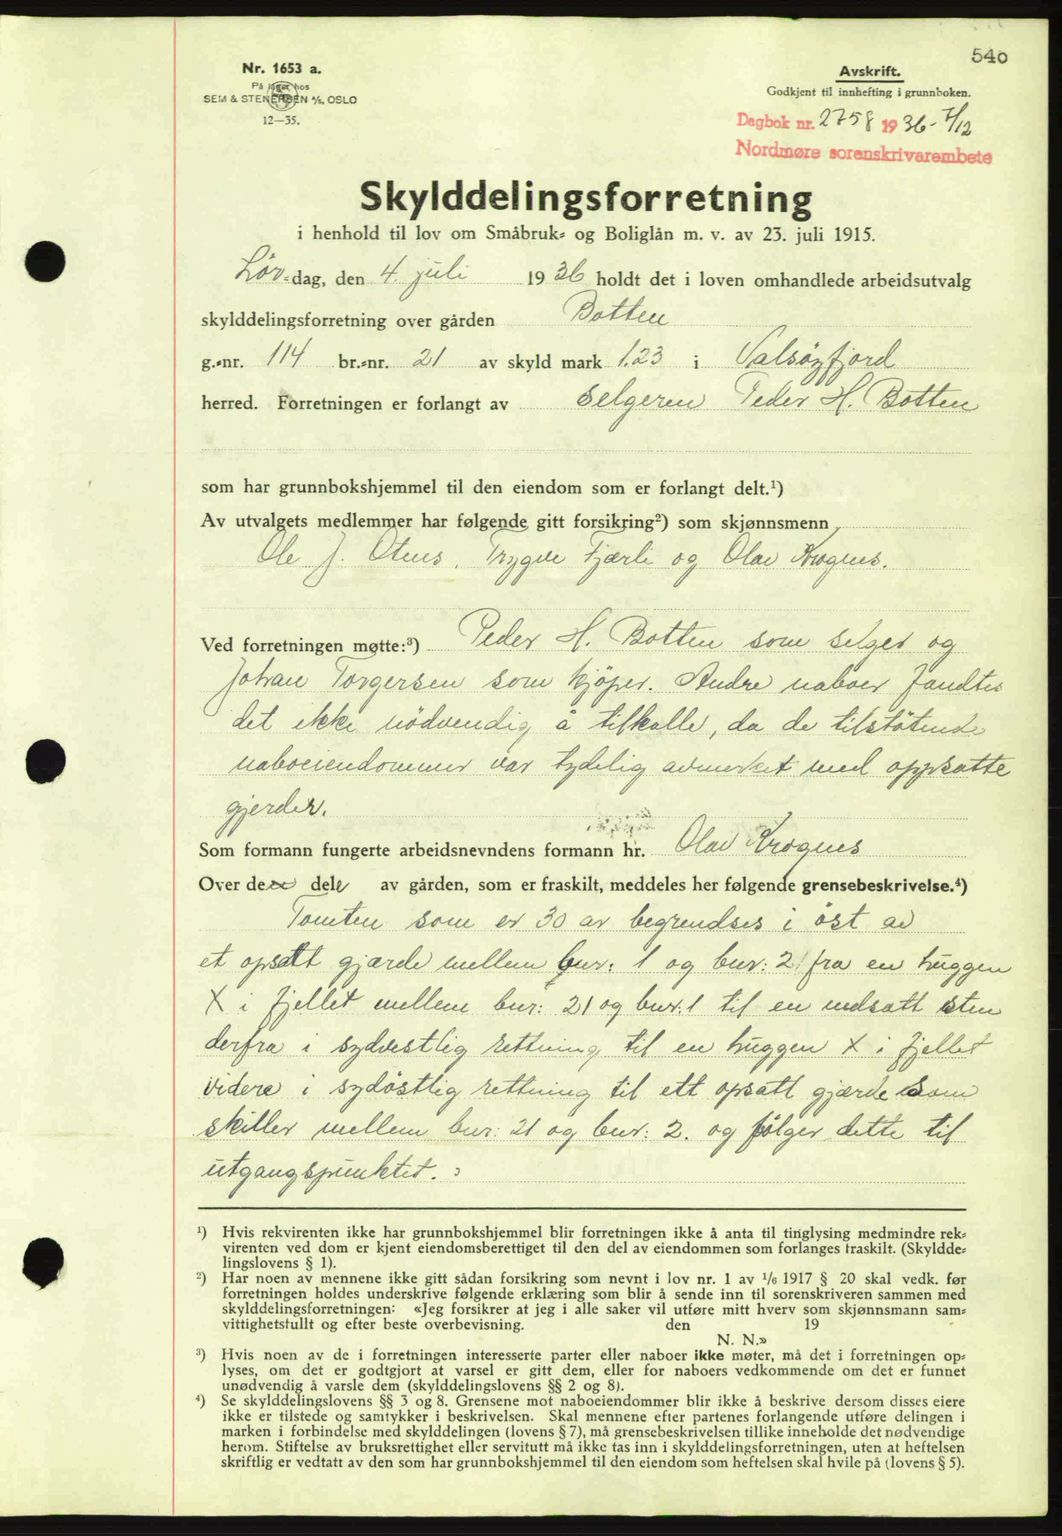 540
Nr. 1653 a.
På lager hos
SEM & STENERSEN A/S, OSLO
12—35.
Avskrift.
Godkjent til innhefting i grunnboken.
Dagbok nr. 2758 1936 - 7/12
Nordmøre sorenskrivarembete
Skylddelingsforretning
i henhold til lov om Småbruk- og Boliglån m. v. av 23. juli 1915.
Lør-dag, den 4. juli 1936 holdt det i loven omhandlede arbeidsutvalg
skylddelingsforretning over gården Botten
g.-nr. 114 br.-nr. 21 av skyld mark 1.23 i Valsöyfjord
herred. Forretningen er forlangt av selgeren Peder H. Botten
som har grunnbokshjemmel til den eiendom som er forlangt delt.¹)
Av utvalgets medlemmer har følgende gitt forsikring²) som skjønnsmenn
Ole J. Otnes, Trygve Fjærli og Olav Krognes.
Ved forretningen møtte:³) Peder H. Botten som selger og
Johan Torgersen som kjöper. Andre naboer fandtes
det ikke nödvendig å tilkalle, da de tilstötende
naboeiendommer var tydelig avmerket med oppsatte
gjerder.
Som formann fungerte arbeidsnevndens formann hr. Olav Krognes
Over den del av gården, som er fraskilt, meddeles her følgende grensebeskrivelse.⁴)
Tomten som er 30 ar begrendses i öst av
et opsatt gjærde mellem bnr: 1 og bnr: 21 fra en huggen
X i fjellet mellem bnr: 21 og bnr: 1 til en nedsatt sten
derfra i sydvestlig rettning til en huggen X i fjellet
videre i sydöstlig rettning til ett opsatt gjærde som
skiller mellem bnr: 21 og bnr: 2. og fölger dette til
utgangspunktet.
¹) Hvis rekvirenten ikke har grunnbokshjemmel blir forretningen ikke å anta til tinglysing medmindre rek-
virenten ved dom er kjent eiendomsberettiget til den del av eiendommen som forlanges fraskilt. (Skyldde-
lingslovens § 1).
²) Har noen av mennene ikke gitt sådan forsikring som nevnt i lov nr. 1 av 1/6 1917 § 20 skal vedk. før
forretningen holdes underskrive følgende erklæring som blir å sende inn til sorenskriveren sammen med
skylddelingsforretningen: «Jeg forsikrer at jeg i alle saker vil utføre mitt hverv som skjønnsmann sam-
vittighetsfullt og efter beste overbevisning. den 19
N. N.»
³) Hvis noen av de i forretningen interesserte parter eller naboer ikke møter, må det i forretningen op-
lyses, om det er godtgjort at varsel er gitt dem, eller for naboers vedkommende om det er funnet
unødvendig å varsle dem (skylddelingslovens §§ 2 og 8).
⁴) Se skylddelingslovens §§ 3 og 8. Grensene mot naboeiendommer blir ikke å beskrive dersom disses eiere
ikke er tilstede og samtykker i beskrivelsen. Skal mennene efter partenes forlangende utføre delingen i
marken i forbindelse med skylddelingen (lovens § 7), må grensebeskrivelsen tillike inneholde det nødvendige
herom. Stiftelse av bruksrettighet eller servitutt må ikke tas inn i skylddelingsforretningen, uten at heftelsen
skriftlig er vedtatt av den som har grunnbokshjemmel til den eiendom som heftelsen skal hvile på (lovens § 5).